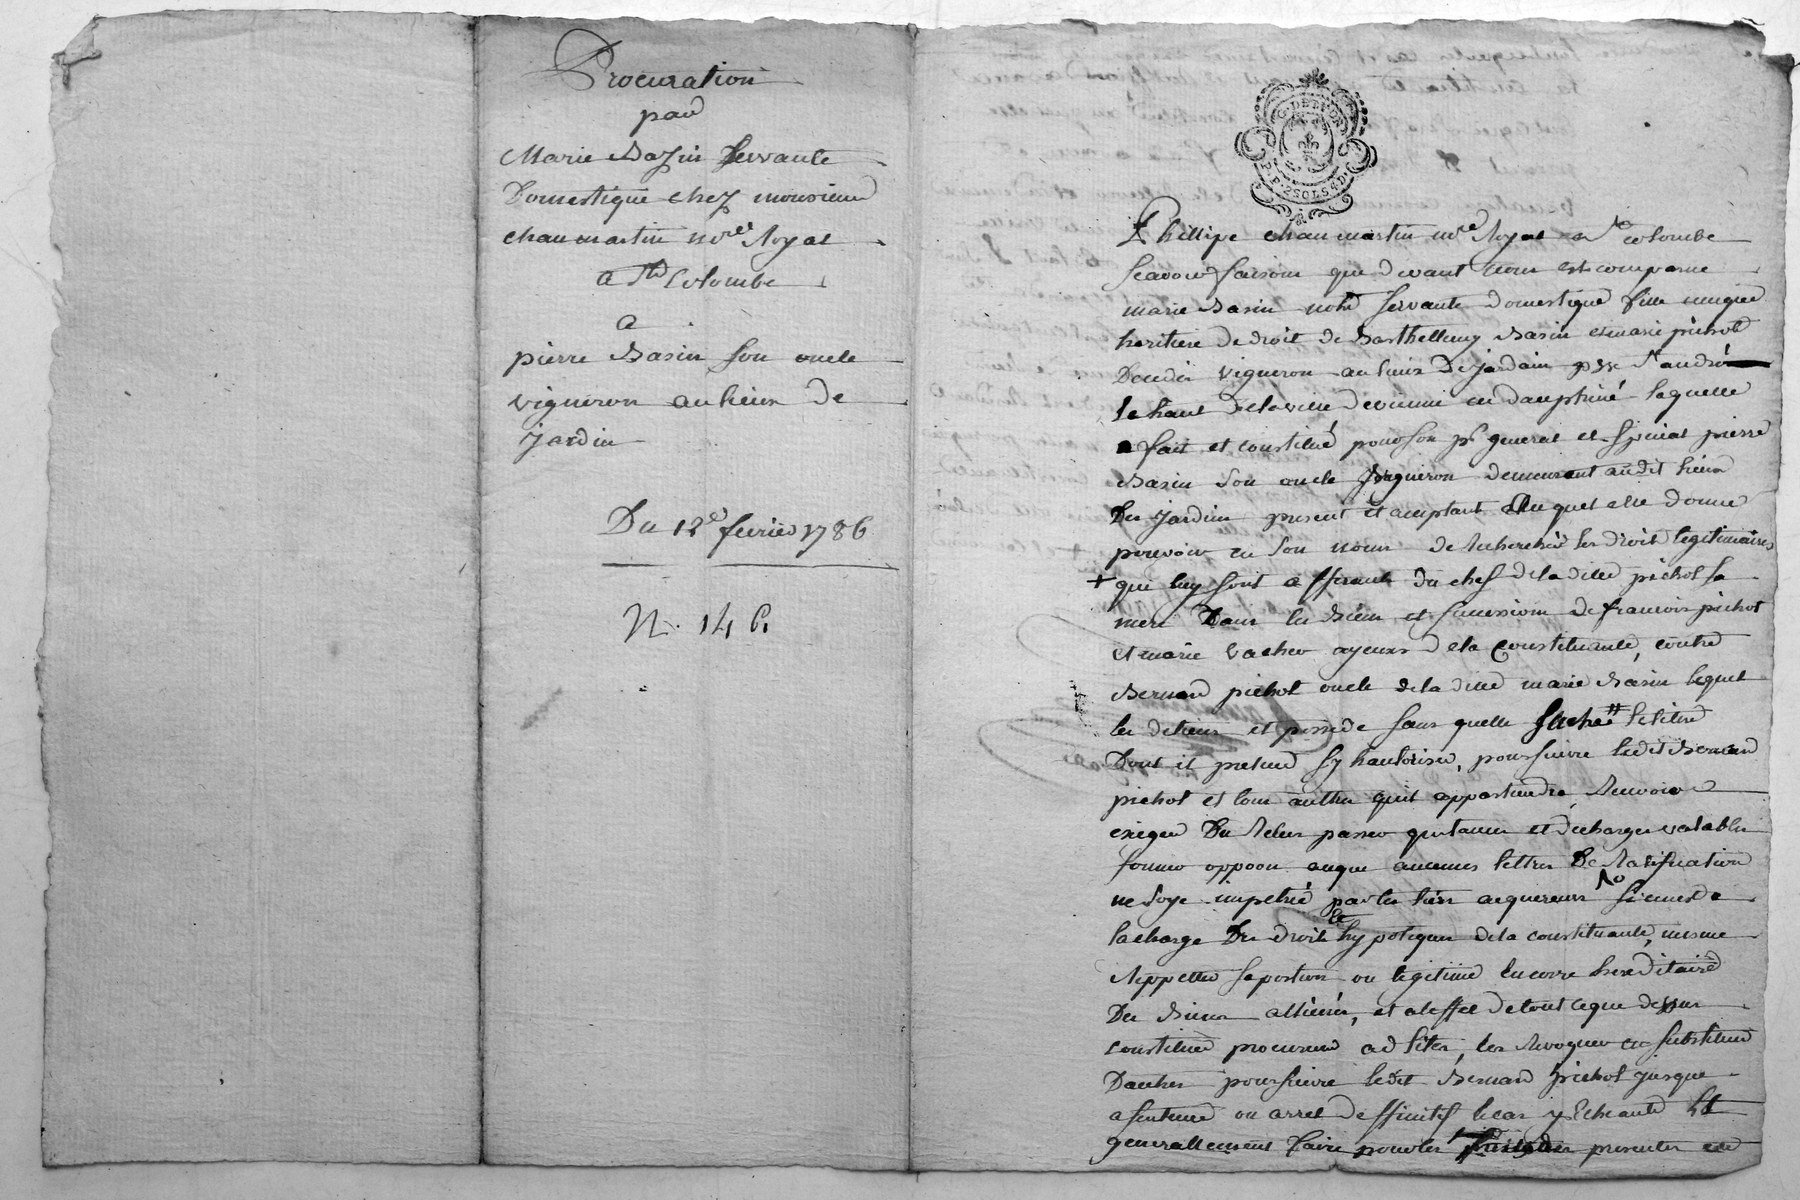 Procuration
par
Marie Bazin Servante
Domestique chez monsieur
chaumartin no.re Royal
a Ste Colombe
a
pierre Basin son oncle
vigneron au lieux de
jardin
Du 12e fevrier 1786
N. 146
G. DE LYON
P.P. 2 SOLS 4 D.
Phillipe chaumartin no.re Royal a Ste colombe
scavoir faisons que devant nous est comparue
marie Basin notre servante domestique fille unique
heritiere de droit de Barthellemy Basin et marie pichot
vigneron au lieux de jardain psse St andré
le haut de la ville de vienne en dauphiné laquelle
a fait et constitué pour son pr general et special pierre
Basin son oncle vigneron demeurant audit lieux
De jardin present et aceptant Auquel elle donne
pouvoir en son nom de Rechercher les droit legitimaires
+ qui luy sont afferant du chef de la ditte pichot sa
mere Dans les Biens et succession de francois pichot
et marie vacher ayeuxs de la constituante, contre
Bernard pichot oncle de la ditte marie Basin lequel
les detient et possede sans quelle sache # le titre
Dont il pretend sy hautoriser, poursuivre ledit Bernard
pichot et tous autres quil appartiendra, Recevoir
exiger Du Recus passer quitances et decharges valables
former oppoon aeque aucunes lettres De Ratification
ne soye impetré par les tiers acquereurs
la charge Des droits hypoteques de la constituante, mesme
Appeller sa portion ou legitime encorre hereditaire
Des Biens alliénés, et a leffet de tout ceque dessus
constituer procureur ad lites, les Revoquer en substituer
Dautres poursuivre ledit Bernard pichot jusque
a sentence ou arret deffinitif le cas y Echeant Et
generallement faire pour les presenter en